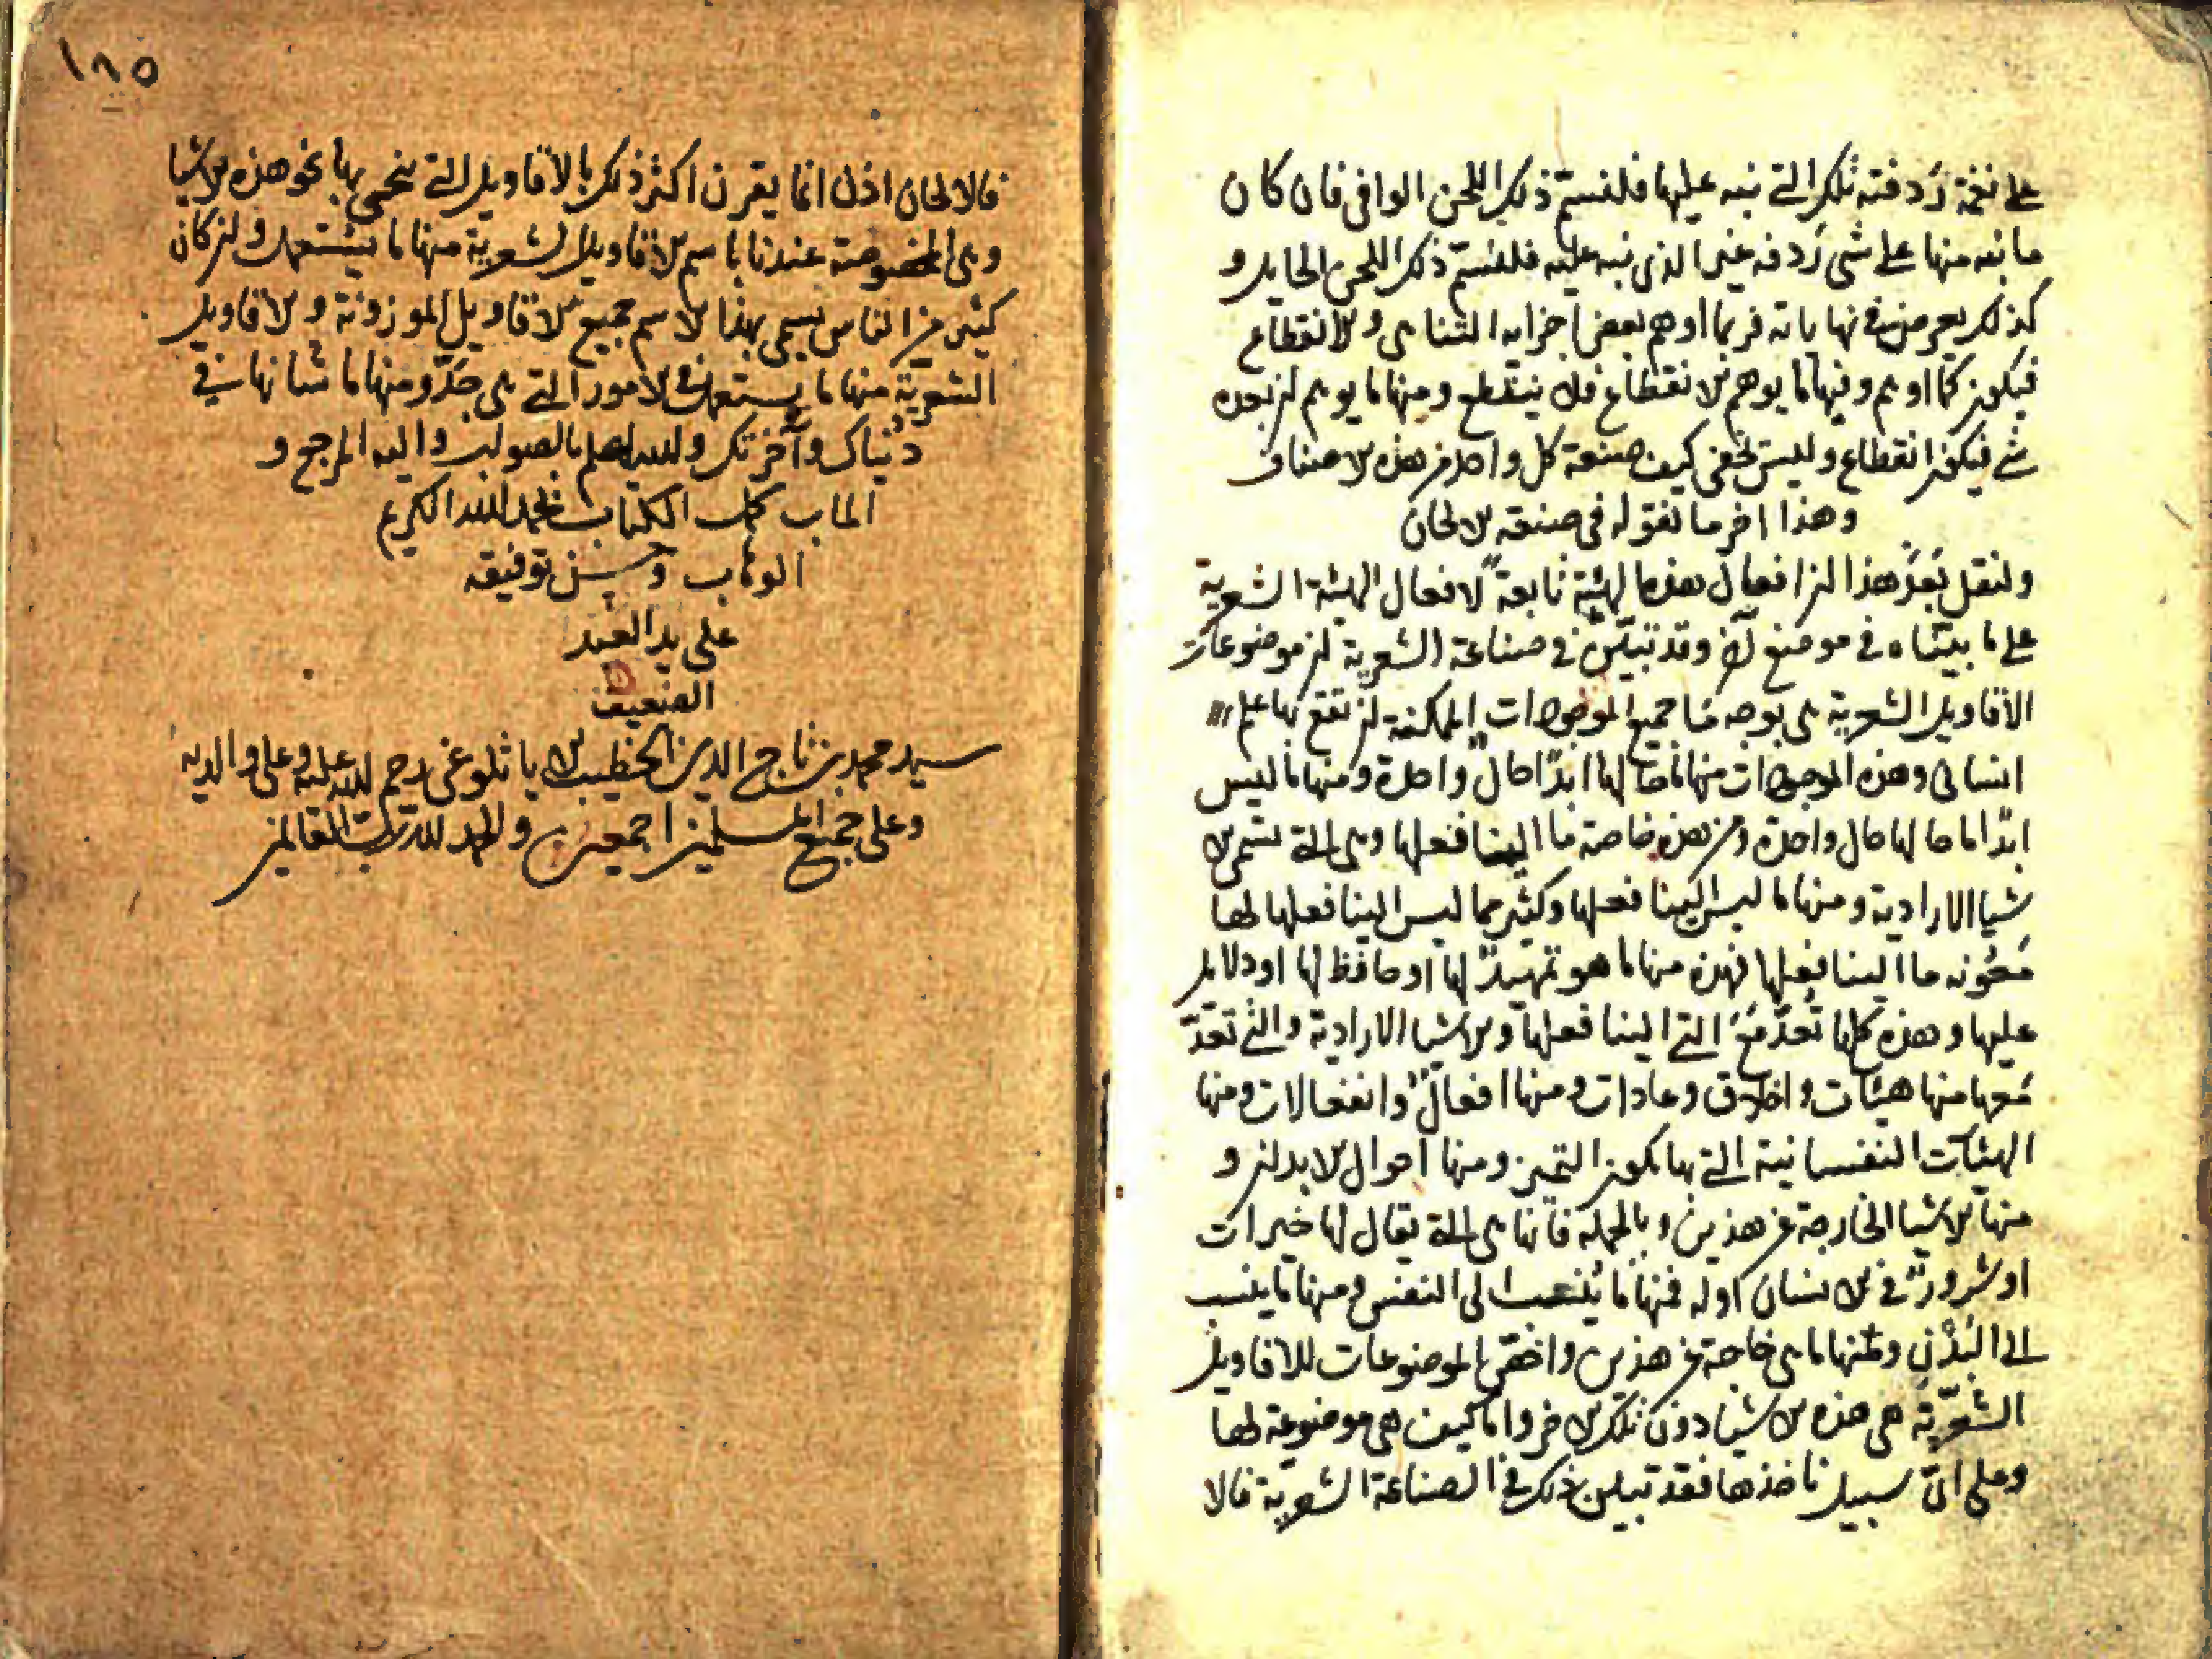 على نغمة ردفته تلك التي نبه عليها فلنسم ذلك اللحن الوافي فان كان
ما نبه منها على شي ردفه غير الذي نبه عليه فلنسم ذلك اللحن الحايد و
كذلك يعرض في نهاياته فربما اوهم بعض اجزايه التناهي والانقطاع
فيكون كما اوهم وفيها ما يوهم الانقطاع فلا ينقطع ومنها ما يوهم ان بعده
شي فيكون انقطاع وليس تخفى كيف صنعة كل واحد من هذه الاصناف
وهذا اخر ما نقوله في صنعة الالحان
ولنقل بعد هذا ان افعال هذه الهيئة تابعة لافعال الهيئة الشعرية
على ما بيناه في موضع آخر وقد تبين في صناعة الشعرية ان موضوعات
الاقاويل الشعرية هي بوجه ما جميع الموجودات الممكنة ان تقع بها علم
انساني وهذه الموجودات منها ما حالها ابدا حال واحدة ومنها ما ليس
ابدا ما حالها حال واحدة ومن هذه خاصة ما الينا فعلها وهي التي تسمى الا
شيا الارادية ومنها ما ليس الينا فعلها وكثير مما ليس الينا فعلها لها
معونه ما الينا فعلها فهذه منها ما هو تمهيد لها او حافظ لها او دلايل
عليها وهذه كلها تعد مع التي الينا فعلها والاشيا الارادية والتي تعد
معها منها هيئات واخلاق وعادات ومنها افعال وانفعالات ومنها
الهيئات النفسانية التي بها يكون التميز ومنها احوال الابدان و
منها الاشيا الخارجة عن هذين وبالجملة فانها هي التي يقال لها خيرات
او شرور في الانسان او له فمنها ما ينسب الى النفس ومنها ما ينسب
الى البدن ومنها ما هي خارجة عن هذين واخص الموضوعات للاقاويل
الشعرية هي هذه الاشيا دون تلك الاخر واما كيف هي موضوعة لها
وعلى اي سبيل ناخذها فقد تبين ذلك في الصناعة الشعرية فالا
١٨٥
فالالحان اذن انما يقرن اكثر ذلك بالاقاويل التي ينحى بها نحو هذه الاشيا
وهي المخصوصة عندنا باسم الاقاويل الشعرية منها ما يستعمل وان كان
كثير من الناس يسمي بهذا الاسم جميع الاقاويل الموزونة والاقاويل
الشعرية منها ما يستعمل في الامور التي هي جد ومنها ما شانها في
دنياك وآخرتك والله اعلم بالصواب واليه المرجع و
الماب كمل الكتاب بحمد الله الكريم
الوهاب وحسن توفيقه
على يد العبد
الضعيف
سيد محمد بن تاج الدين الخطيب رحم الله عليه وعلى والديه
وعلى جميع المسلمين اجمعين والحمد لله رب العالمين